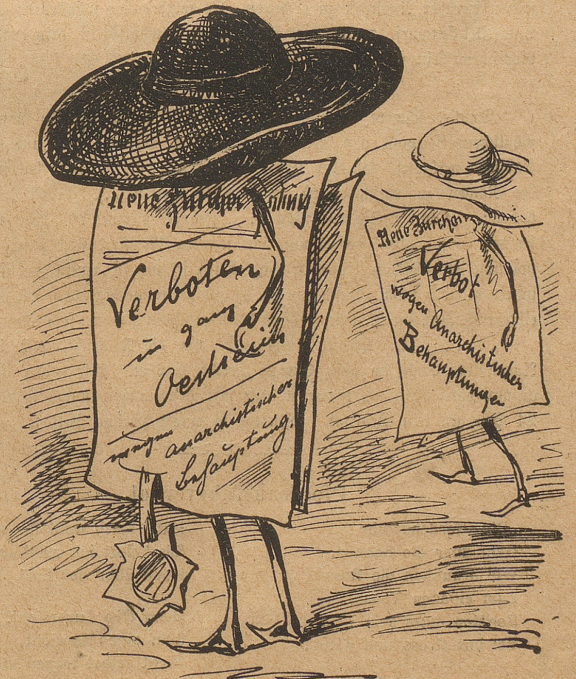 Neue Zürcher Zeitung
Verboten
in ganz
wegen anarchistischer
Behauptung.
Neue Zürcher
Verbot
wegen Anarchistischer
Behauptungen